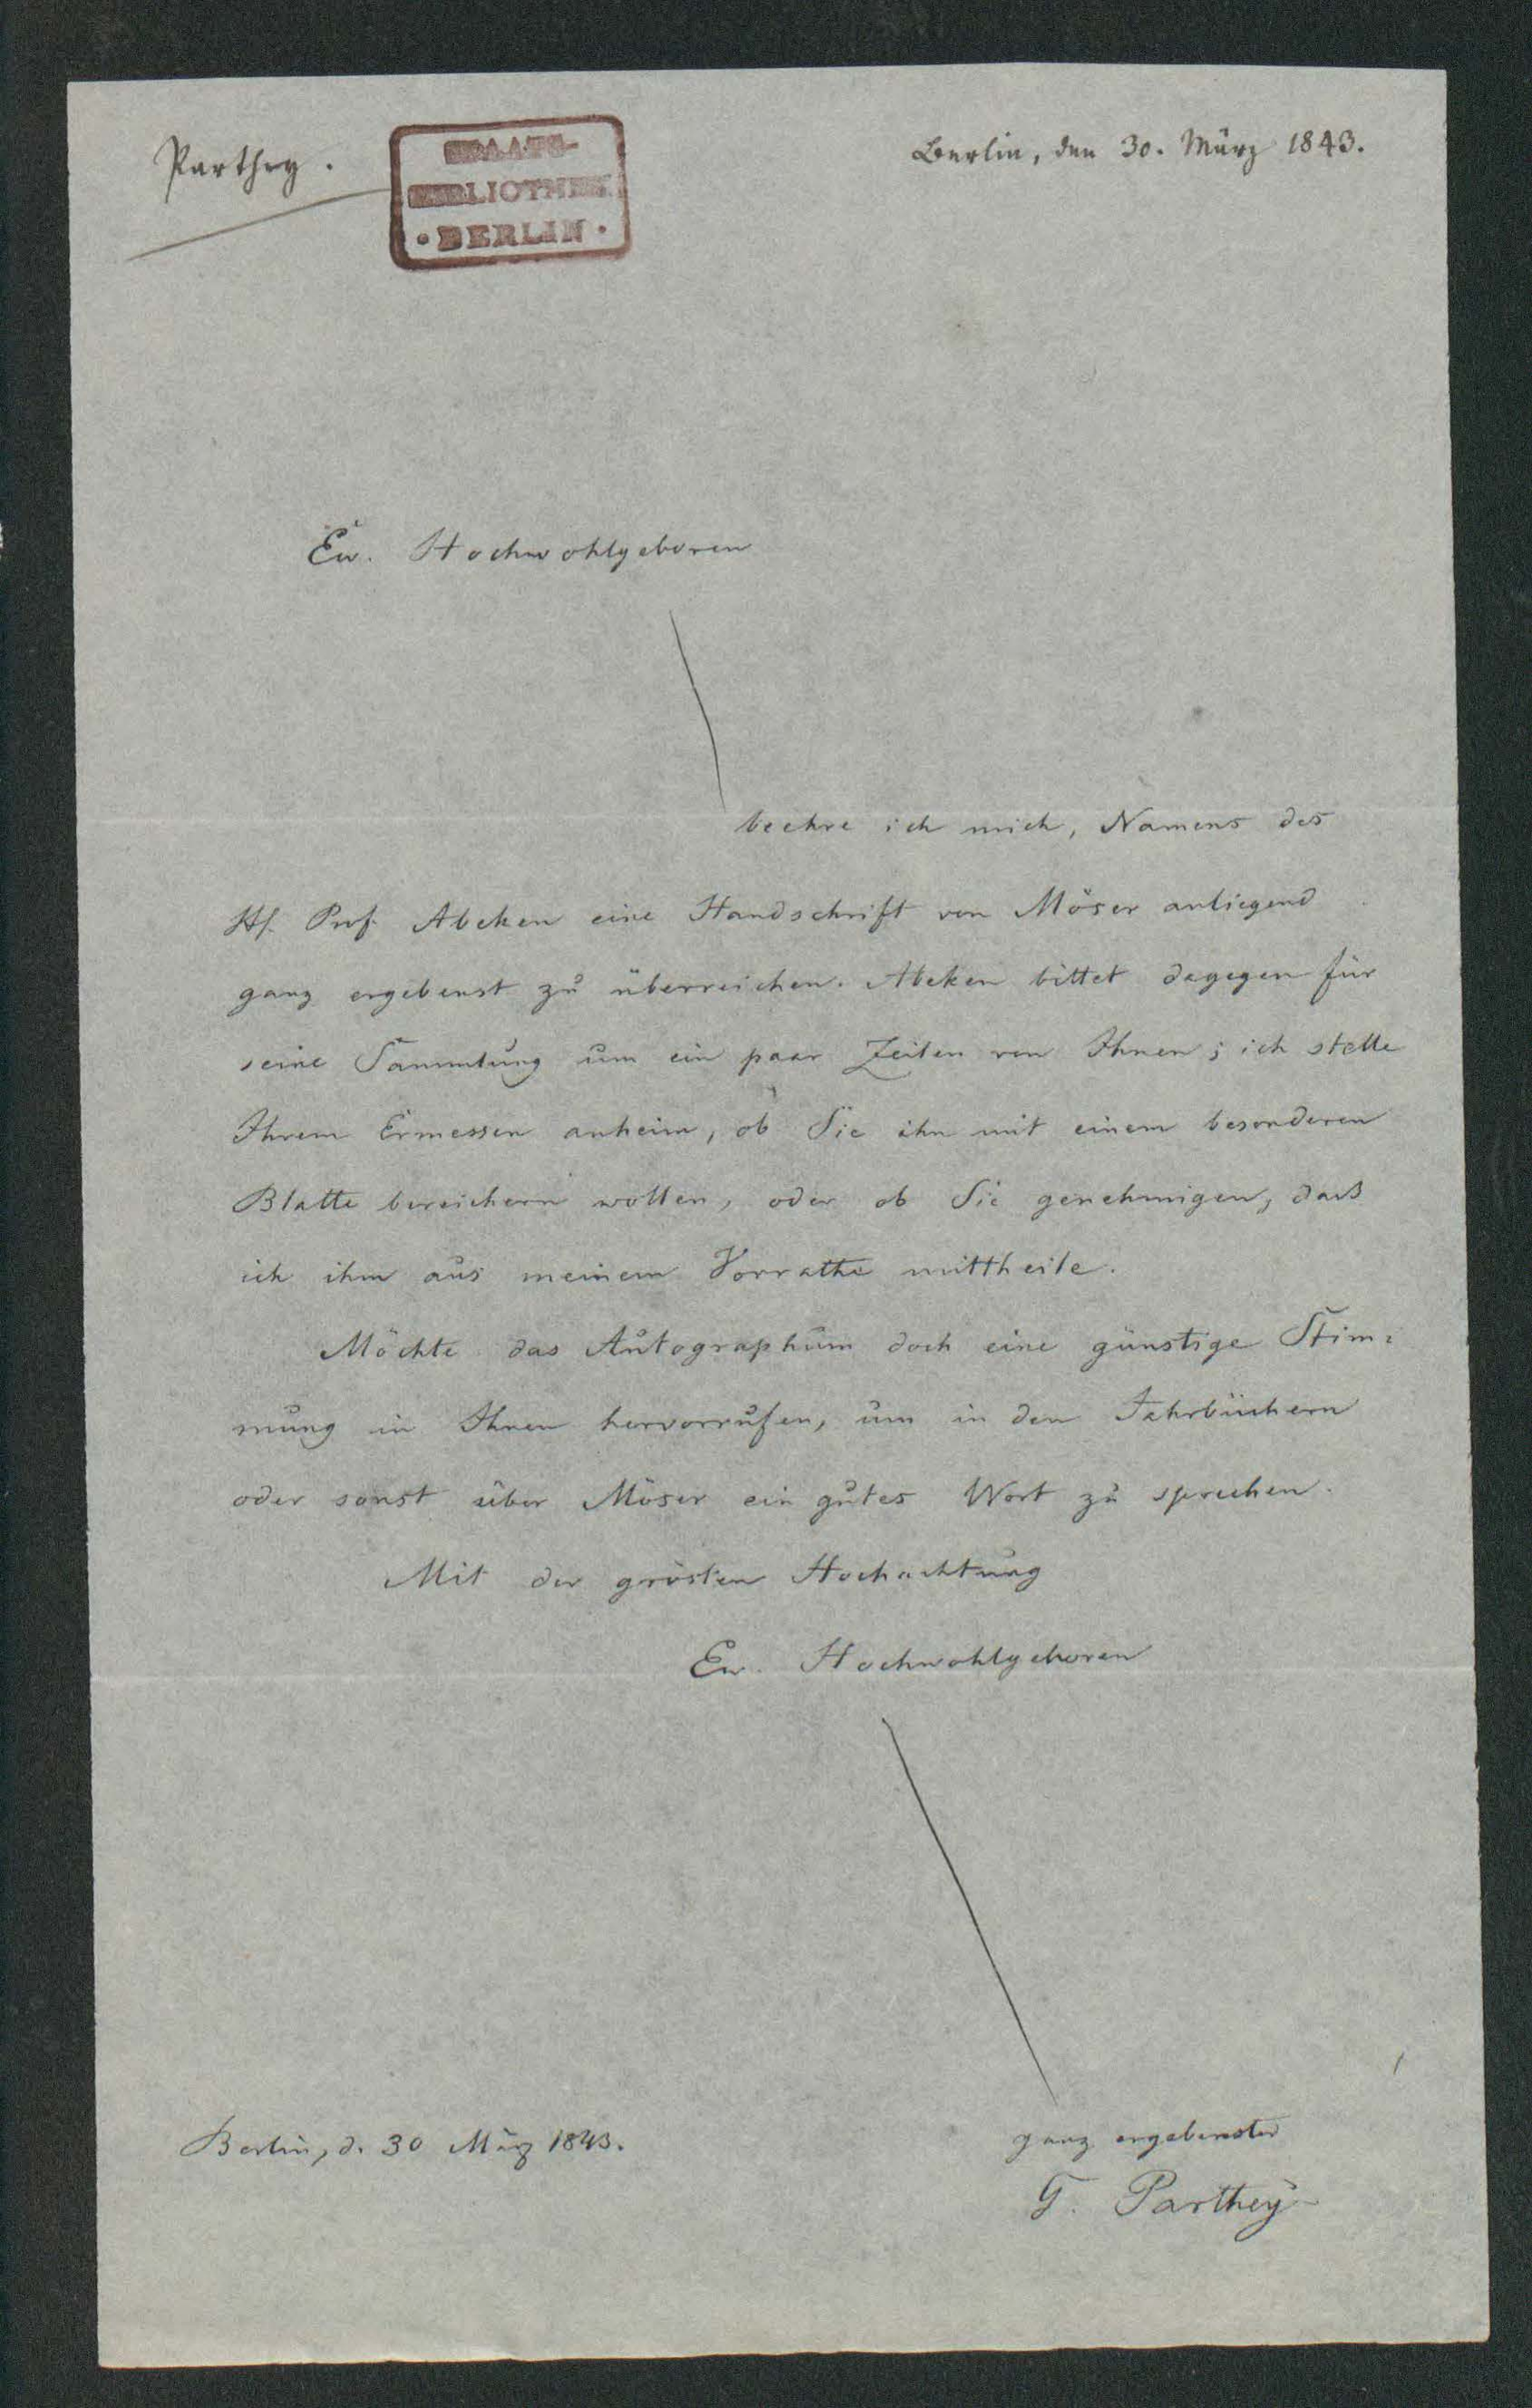 Parthey.
STAATS-
BIBLIOTHEK
• BERLIN •
Berlin, den 30. März 1843.
Ew. Hochwohlgeboren
beehre ich mich, Namens des
H. Prof. Abeken eine Handschrift von Möser anliegend
ganz ergebenst zu überreichen. Abeken bittet dagegen für
seine Sammlung um ein paar Zeilen von Ihnen; ich stelle
Ihrem Ermessen anheim, ob Sie ihn mit einem besonderen
Blatte bereichern wollen, oder ob Sie genehmigen, daß
ich ihm aus meinem Vorrathe mittheile.
Möchte das Autographum doch eine günstige Stim-
mung in Ihnen hervorrufen, um in den Jahrbüchern
oder sonst über Möser ein gutes Wort zu sprechen.
Mit der grösten Hochachtung
Ew. Hochwohlgeboren
ganz ergebenster
G. Parthey
Berlin, d. 30 März 1843.